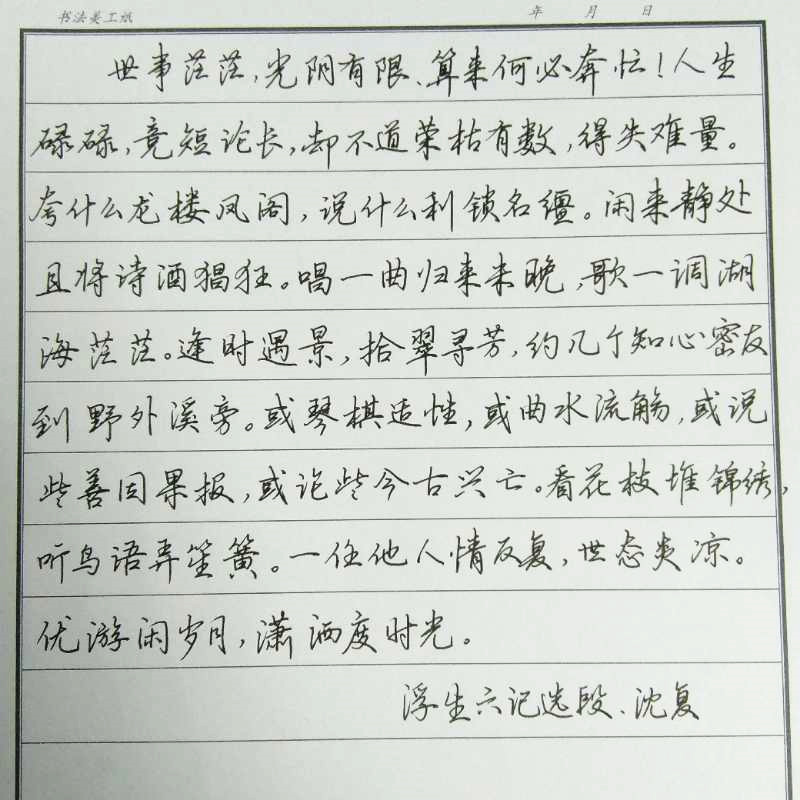 书法美工纸 年 月 日
世事茫茫，光阴有限、算来何必奔忙！人生
碌碌，竞短论长，却不道荣枯有数，得失难量。
夸什么龙楼凤阁，说什么利锁名缰。闲来静处
且将诗酒猖狂。唱一曲归来来晚，歌一调湖
海茫茫。逢时遇景，拾翠寻芳，约几个知心密友
到野外溪旁。或琴棋适性，或曲水流觞，或说
些善因果报，或论些今古兴亡。看花枝堆锦绣，
听鸟语弄笙簧。一任他人情反复，世态炎凉。
优游闲岁月，潇洒度时光。
浮生六记选段、沈复